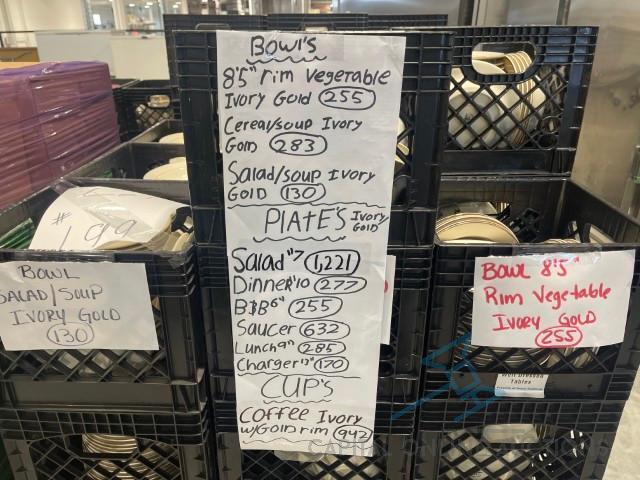 BOWL'S
8'5" rim Vegetable
Ivory Gold 255
Cereal/soup Ivory
Gold 283
Salad/soup Ivory
GOLD 130
PlATE'S Ivory
GOLD
Salad "7 1,221
Dinner "10 277
B&B 6" 255
Saucer 632
Lunch 9" 285
Charger 12" 170
CUP'S
COFFEE Ivory
w/GOLD rim 942
# 199
BOWL
SALAD/SOUP
IVORY GOLD
130
BOWL 8'5"
Rim Vegetable
IVORY GOLD
255
Well Dressed
Tables
CAPITAL ONLINE AUCTIONS